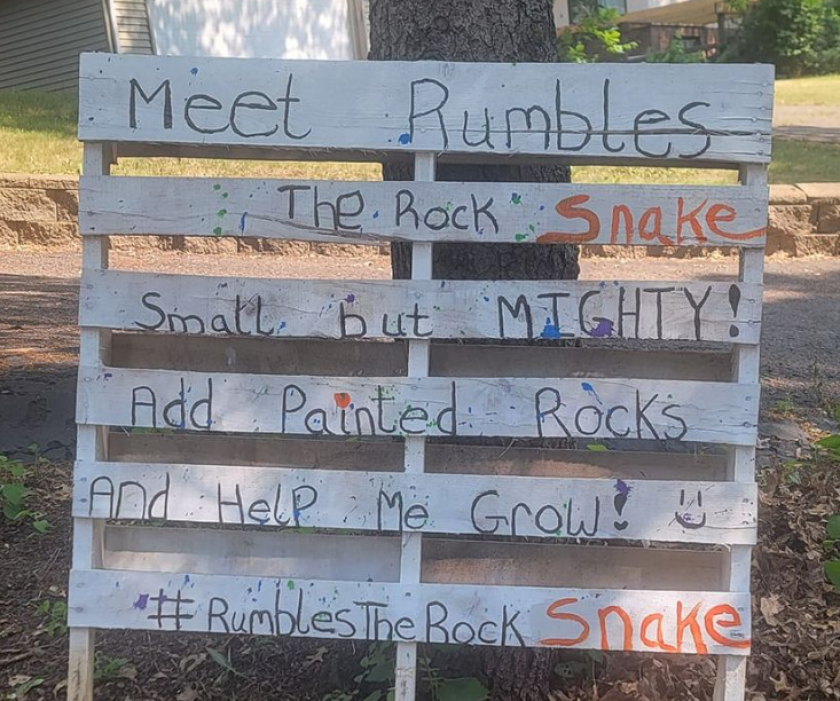 Meet Rumbles
The Rock Snake
Small but MIGHTY!
Add Painted Rocks
And Help Me Grow! :)
#RumblesTheRock Snake